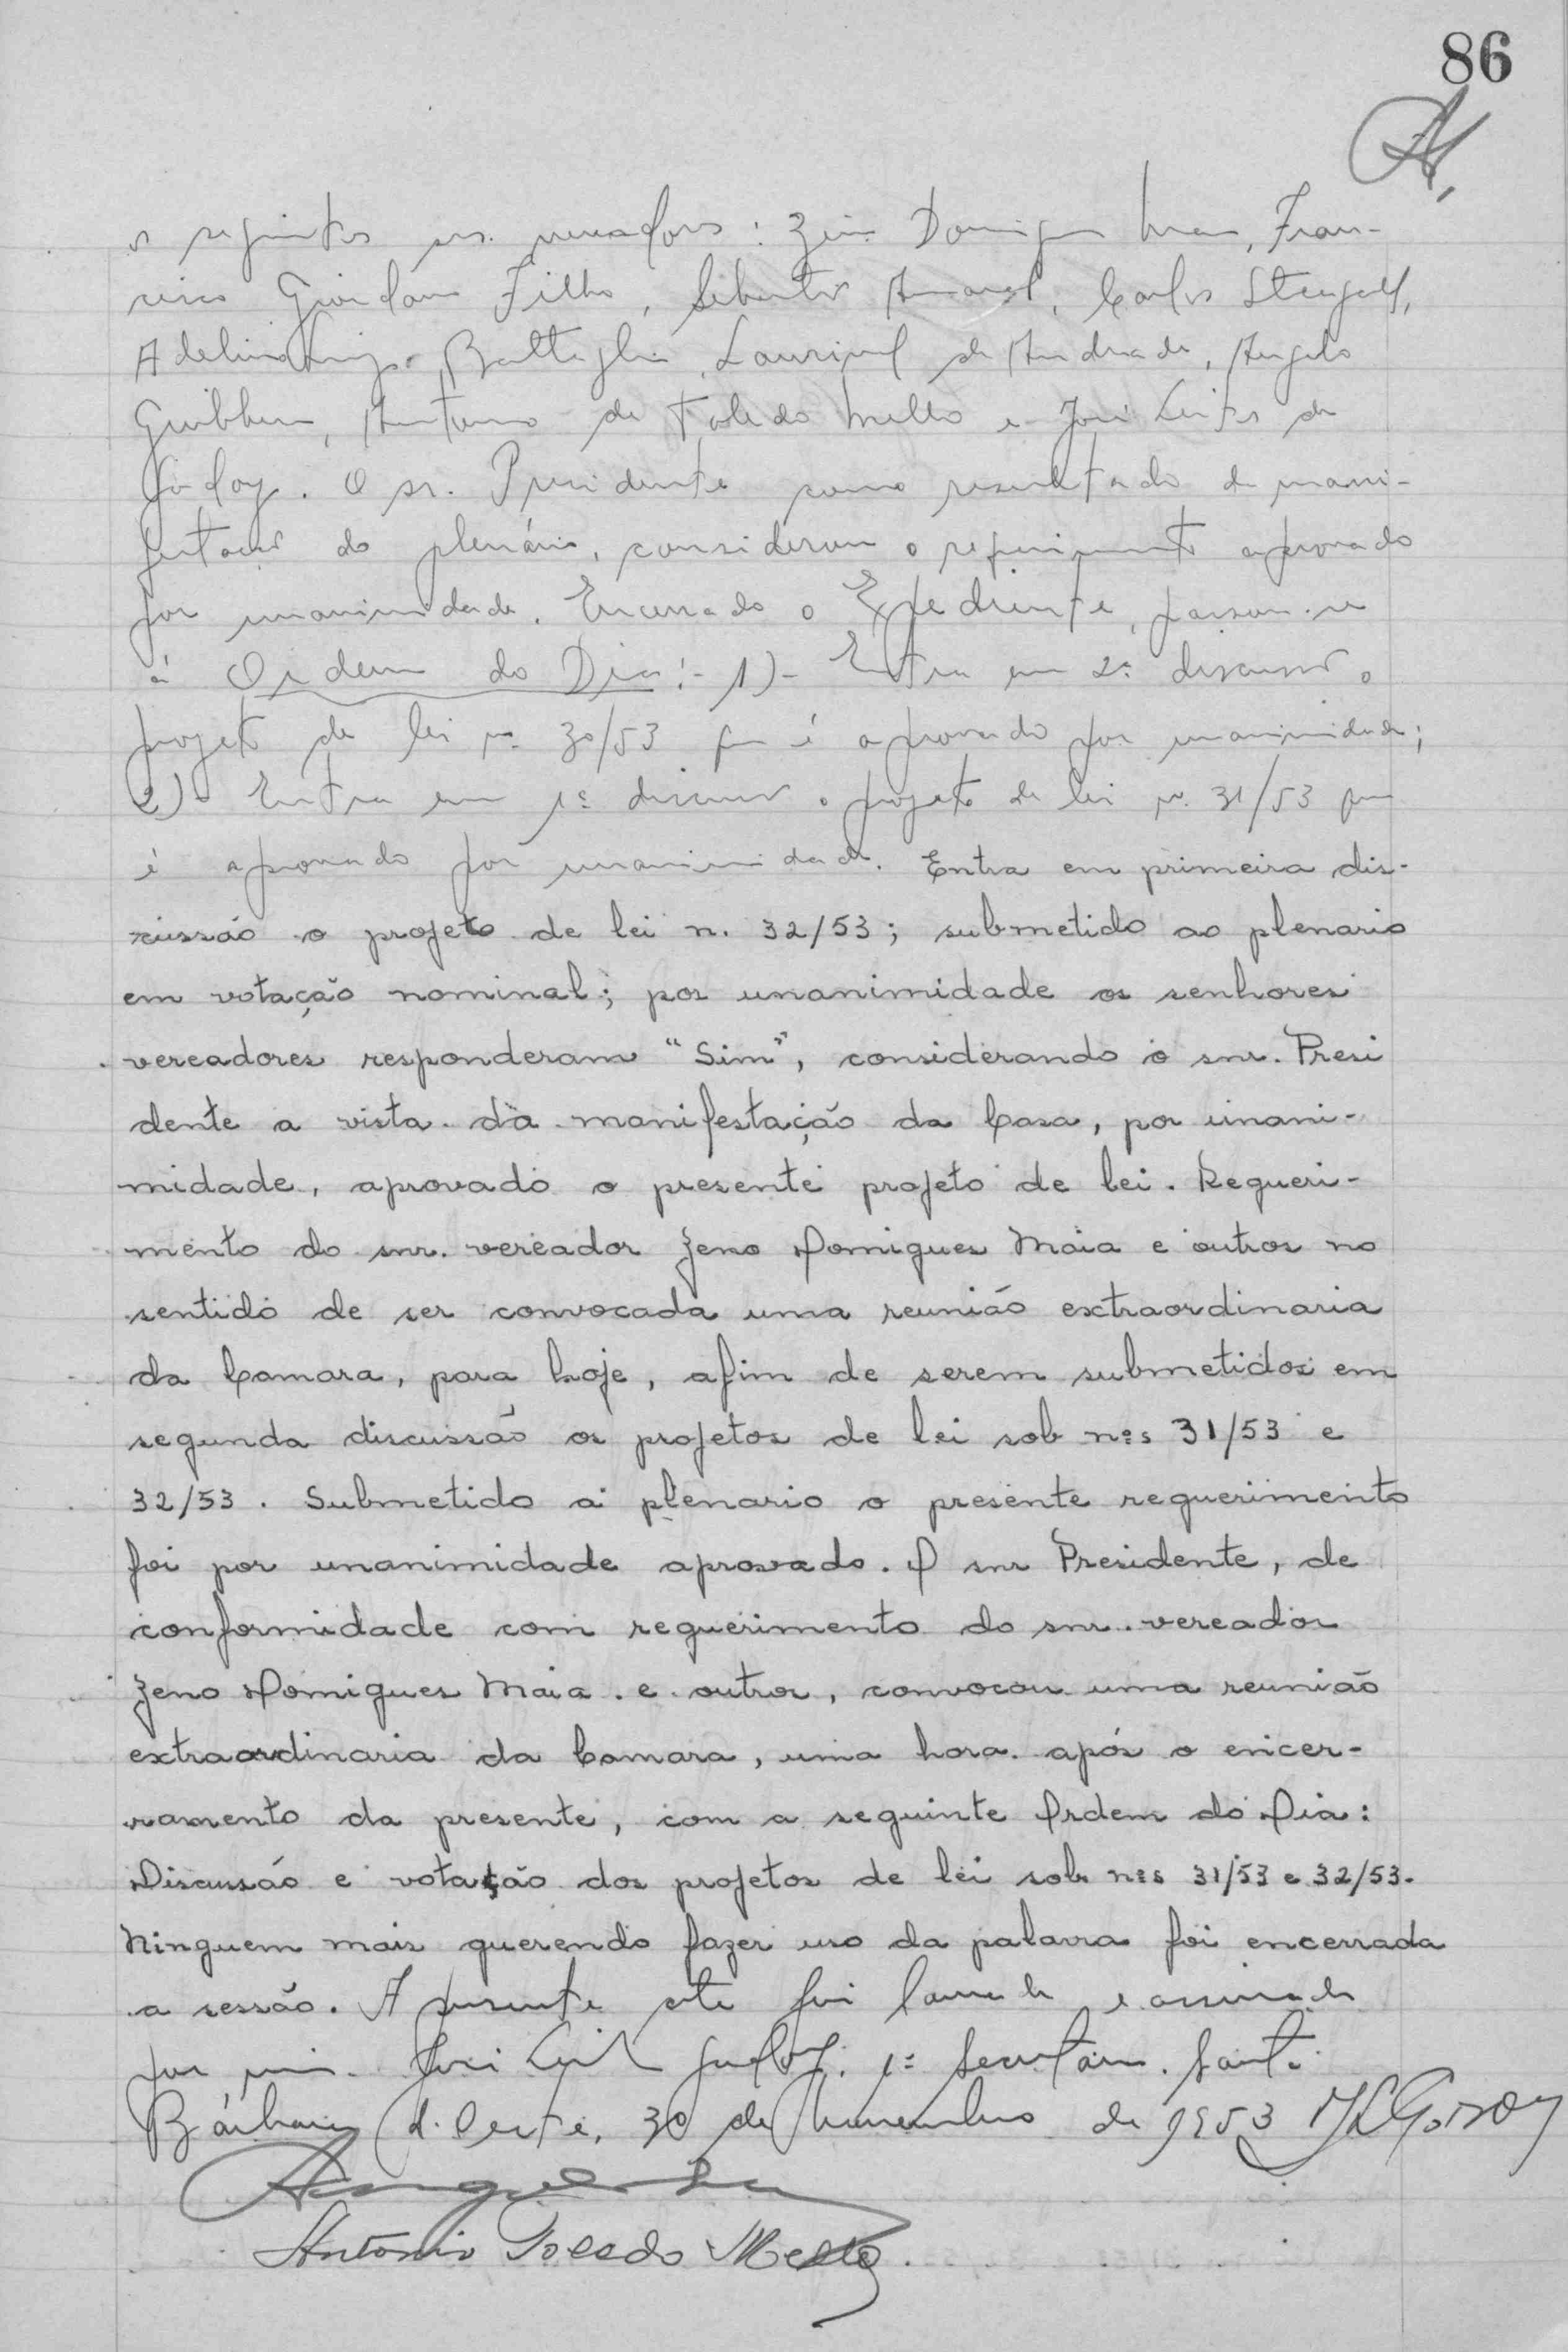 86
os seguintes srs. vereadores: Zeno Domingues Maia, Fran-
cisco Giordano Filho, Sebastião Amaral, Carlos Steagall,
Adelino Battaglia, Lourival de Andrade, Angelo
Giubbina, Antonio de Toledo Mello e José Leite de
Godoy. O sr. Presidente como resultado da mani-
festação do plenário, considerou o requerimento aprovado
por unanimidade. Encerrado o Expediente, passou-se
à Ordem do Dia:- 1)- Entra em 2ª discussão o
projeto de lei n. 30/53 que é aprovado por unanimidade;
2)- Entra em 1ª discussão o projeto de lei n. 31/53 que
é aprovado por unanimidade. Entra em primeira dis-
cussão o projeto de lei n. 32/53; submetido ao plenario
em votação nominal; por unanimidade os senhores
vereadores responderam "Sim", considerando o snr. Presi
dente a vista da manifestação da Casa, por unani-
midade, aprovado o presente projeto de lei. Requeri-
mento do snr. vereador Zeno Domigues Maia e outros no
sentido de ser convocada uma reunião extraordinaria
da Camara, para hoje, afim de serem submetidos em
segunda discussão os projetos de lei sob nºs 31/53 e
32/53. Submetido a plenario o presente requerimento
foi por unanimidade aprovado. O snr Presidente, de
conformidade com requerimento do snr. vereador
Zeno Domigues Maia e outros, convocou uma reunião
extraordinaria da Camara, uma hora após o encer-
ramento da presente, com a seguinte Ordem do Dia:
Discussão e votação dos projetos de lei sob nºs 31/53 e 32/53.
Ninguem mais querendo fazer uso da palavra foi encerrada
a sessão. A presente ata foi lavrada e assinada
por mim José Leite Godoy, 1º Secretario. Santa
Bárbara d'Oeste, 30 de Novembro de 1953 JLGodoy
Antonio Toledo Mello